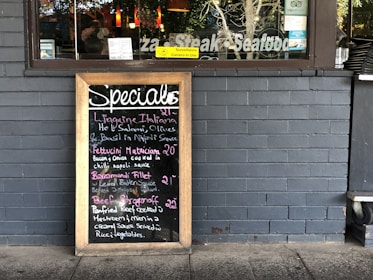 za - Steak - Seafood
Specials
Linguine Italiana 21-
Hot Salami, Olives
& Basil in Napoli Sauce
Fettucini Matriciana 20-
Bacon & Onion cooked in
chilli napoli sauce
Barramundi Fillet 21-
w Lemon Butter Sauce
Beef Stroganoff 25
Panfried Beef cooked in
Mushroom & Onion in a
creamy Sauce Served w
Rice & Vegetables.